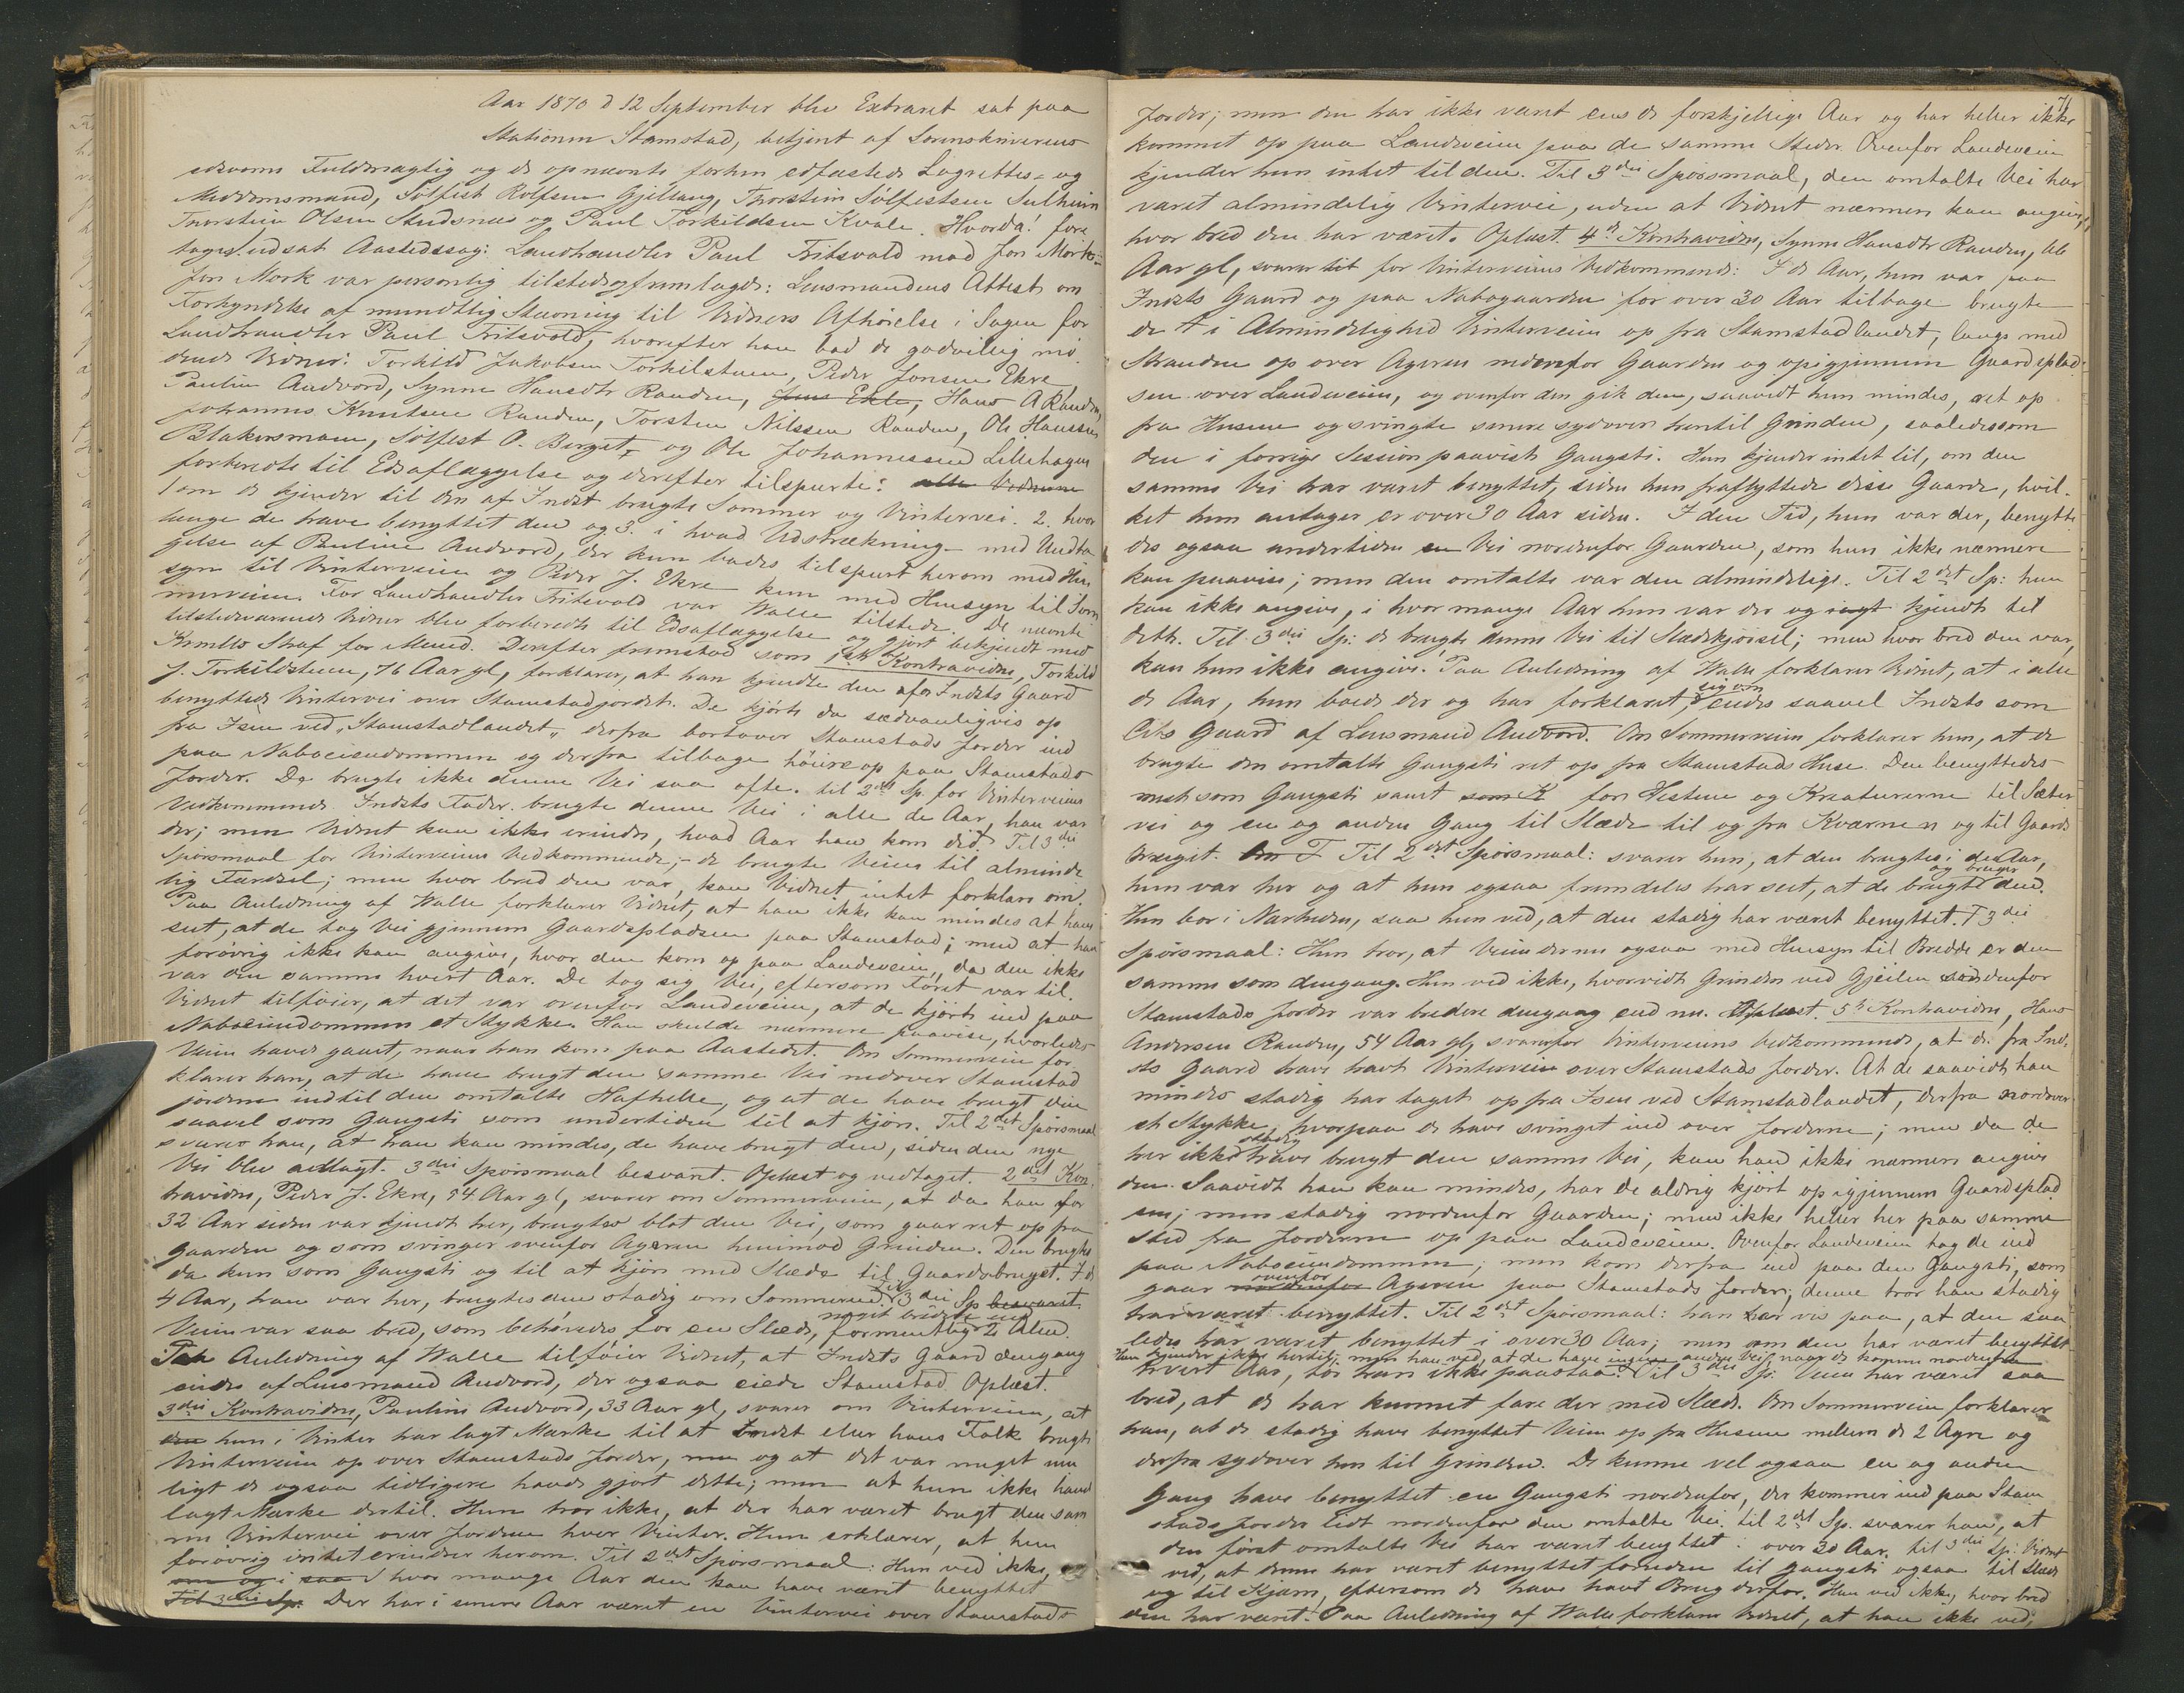 Aar 1870 d 12 September blev Extraret sat paa
Stationen Stamstad, betjent af Sorenskriverens
edsvorne Fuldmægtig og de opnævnte forhen edfæstede Lagrettes- og
Meddomsmænd, Sølfest Rolfsen Gjeltang, Thorstein Sølfestsen
Thorstein Olsen Studsnæs og Paul Torkildsen Kvale. Hvorda! fore
toges: udsat Aastedssag: Landhandler Paul Fritsvold mod Jon Mork.
Jon Mork var personlig tilstede og fremlagde: Lensmandens Attest om
Forkyndelse af mundtlig Stævning til Vidners Afhørelse i Sagen for
Landhandler Paul Fritsvold, hvorefter han bad de godvillig mø-
dende Vidner: Torkild Jakobsen Torkilstuen, Peder Jonsen Ekre,
Pauline Andvord, Synne Hansdtr Randen, Jens Ekre, Hans A Randen,
Johannes Knutsen Randen, Torsten Nilssen Randen, Ole Hanssen
Blakersmoen, Sølfest O. Berget, og Ole Johannessen Lillehagen
forberedte til Edsaflæggelse og derefter tilspurte: alle Vidnerne
1 om de kjender til den af Indst brugte Sommer og Vintervei. 2. hvor
længe de have benyttet den og 3. i hvad Udstrækning – med Undta
gelse af Pauline Andvord, der kun bades tilspurt herom med Hen
syn til Vinterveien og Peder J. Ekre kun med Hensyn til Som
merveien. For Landhandler Fritsvold var Walle tilstede. De nævnte
tilstedeværende Vidner blev forberedte til Edsaflæggelse og gjort bekjendt med
Straf for Mened. Derefter fremstod som 1ste Kontravidne, Torkild
J. Torkildstuen, 76 Aar gl, forklarer, at han kjendte den af fra Indsts Gaard
benyttede Vintervei over Stamstadjordet. De kjørte da sædvanligvis op
fra Isen ved „Stamstadlandet„ derfra bortover Stamstads Jorder ind
paa Naboeiendommen og derfra tilbage høiere op paa Stamstads
Jorder. De brugte ikke denne Vei saa ofte. til 2det Sp. for Vinterveiens
Vedkommende. Indsts Fader brugte denne Vei i alle de Aar, han var
der; men Vidnet kan ikke erindre, hvad Aar han kom did. Til 3die
Spørsmaal for Vinterveiens Vedkommende;- de brugte Veien til alminde
lig Færdsel; men hvor bred den var, kan Vidnet intet forklare om.
Paa Anledning af Walle forklarer Vidnet, at han ikke kan mindes at have
seet, at de tog Vei gjennem Gaardspladsen paa Stamstad; men at han
forøvrig ikke kan angive, hvor den kom op paa Landeveien, da den ikke
var den samme hvert Aar. De tog sig Vei, eftersom Føret var til.
Vidnet tilføier, at det var ovenfor Landeveien, at de kjørte ind paa
Naboeiendommen et Stykke. Han skulde nærmere paavise, hvorledes
Veien havde gaaet, naar han kom paa Aastedet. Om Sommerveien for
klarer han, at de have brugt den samme Vei nedover Stamstad
jorderne indtil den omtalte Hafhelle, og at de have brugt den
saavel som Gangsti som undertiden til at kjøre. Til 2det Spørsmaal
svarer han, at han kan mindes, de have brugt den, siden den nye
Vei blev anlagt. 3die Spørsmaal besvaret. Oplæst og vedtaget. 2det Kon
travidne, Peder J. Ekre, 54 Aar gl, svarer om Sommerveien, at da han for
32 Aar siden var kjendt her, brugtes blot den Vei, som gaar ret op fra
Gaarden og som svinger ovenfor Ageren henimod Grinden. Den brugtes
da kun som Gangsti og til at kjøre med Slæde til Gaardsbruget. I de
4 Aar, han var her, brugtes den stadig om Sommeren. Til 3die Sp besvaret
Veien var saa bred, som behøvedes for en Slæde, formentlig noget bredere end 2 Alen.
Paa Anledning af Walle tilføier Vidnet, at Indsts Gaard dengang
eiedes af Lensmand Andvord, der ogsaa eiede Stamstad. Oplæst.
3die Kontravidne, Pauline Andvord, 33 Aar gl, svarer om Vinterveien, at
den hun i Vinter har lagt Mærke til at Indst eller hans Folk brugte
Vinterveien op over Stamstads Jorder, men og at det var meget mu
ligt de ogsaa tidligere havde gjort dette; men at hun ikke havde
lagt Mærke dertil. Hun tror ikke, at der har været brugt den sam
me Vintervei over Jorderne hver Vinter. Hun erklærer, at hun
forøvrig intet erindrer herom. Til 2det Spørsmaal: Hun ved ikke,
om og i saa I hvor mange Aar den kan have været benyttet
Til 3die Sp. Der har i senere Aar været en Vintervei over Stamstads
71
Jorder; men den har ikke været ens de forskjellige Aar og har heller ikke
kommet op paa Landeveien paa de samme Steder. Ovenfor Landeveien
kjender hun intet til den. Til 3die Spørsmaal, den omtalte Vei har
været almindelig Vintervei, uden at Vidnet nærmere kan angive,
hvor bred den har været. Oplæst. 4de Kontravidne, Synne Hansdtr Randen,
Aar gl, svarer til for Vinterveiens Vedkommende: I de Aar, hun var paa
Indsts Gaard og paa Nabogaarden for over 30 Aar tilbage brugte
de i Almindelighed Vinterveien op fra Stamstadlandet, langs med
Stranden op over Ageren nedenfor Gaarden og op igjennem Gaardsplad-
sen over Landeveien, og ovenfor den gik den, saavidt hun mindes, ret op
fra Husene og svingte senere sydover hentil Grinden, saaledes som
den i forrige Session paaviste Gangsti. Hun kjender intet til, om den
samme Vei har været benyttet, siden hun fraflyttede disse Gaarde, hvil-
ket hun antager er over 30 Aar siden. I den Tid, hun var der, benytte
des ogsaa undertiden en Vei nordenfor Gaarden, som hun ikke nærmere
kan paavise; men den omtalte var den almindelige. Til 2det Sp: hun
kan ikke angive, i hvor mange Aar hun var der og kjendte til
dette. Til 3die Sp: de brugte denne Vei til Slædekjørsel; men hvor bred den var,
kan hun ikke angive. Paa Anledning af Walle forklarer Vidnet, at i alle
de Aar, hun boede der og har forklaret sig om, eiedes saavel Indsts som
Cits Gaard af Lensmand Andvord. Om Sommerveien forklarer hun, at de
brugte den omtalte Gangsti ret op fra Stamstads Huse. Den benyttedes
mest som Gangsti samt som K for Hestene og Kreaturerne til Sæter
vei og en og anden Gang til Slæde til og fra Kværnen og til Gaards
Til 2det Spørsmaal: svarer hun, at den brugtes i de Aar,
hun var her og at hun ogsaa fremdeles har seet, at de brugte og bruger den.
Hun bor i Nærheden, saa hun ved, at den stadig har været benyttet. T 3die
Spørsmaal: Hun tror, at Veien der nu ogsaa med Hensyn til Bredde er den
samme som dengang. Hun ved ikke, hvorvidt Grinden ved Gjeilen nedenfor
Stamstads Jorder var bredere dengang end nu. Oplæst. 5te Kontravidne, Hans
Andersen Randen, 54 Aar gl, svarer for Vinterveiens Vedkommende, at de fra Ind-
sts Gaard have havt Vintervei over Stamstads Jorder. At de saavidt han
mindes stadig har taget op fra Isen ved Stamstadlandet, derfra nordover
et Stykke, hvorpaa de have svinget ind over Jorderne; men da de
her ikke stadig have brugt den samme Vei, kan han ikke nærmere angive
den. Saavidt han kan mindes, har de aldrig kjørt op igjennem Gaardsplad
sen; men stadig nordenfor Gaarden; men ikke heller her paa samme
Sted fra Jorderne op paa Landeveien. Ovenfor Landeveien tog de ind
paa Naboeiendommen; men kom derfra ind paa den Gangsti, som
gaar nordenfor ovenfor Ageren paa Stamstads Jorder; denne tror han stadig
har været benyttet. Til 2det Spørsmaal: han er vis paa, at den saa
ledes har været benyttet i over 30 Aar; men om den har været benyttet
Han kjender ikke hertil; men han ved, at de have ingen anden Vei, naar de komme nordenfra
hvert Aar, tør han ikke paastaa. Til 3die Sp. Veien har været saa
bred, at de har kunnet fare der med Slæde. Om Sommerveien forklarer
han, at de stadig have benyttet Veien op fra Husene mellem de 2 Agre og
derfra sydover hen til Grinden. De kunne vel ogsaa en og anden
Gang have benyttet en Gangsti nordenfor, der kommer ind paa Stam
stads Jorder lidt nordenfor den omtalte Vei. til 2det Sp. svarer han, at
den først omtalte Vei har været benyttet i over 30 Aar. til 3die Sp: Vidnet
ved, at denne har været benyttet foruden til Gangsti ogsaa til Slæde
og til Kjærre, eftersom de have havt Brug derfor. Han ved ikke, hvor bred
den har været. Paa Anledning af Walle forklarer Vidnet, at han ikke ved,